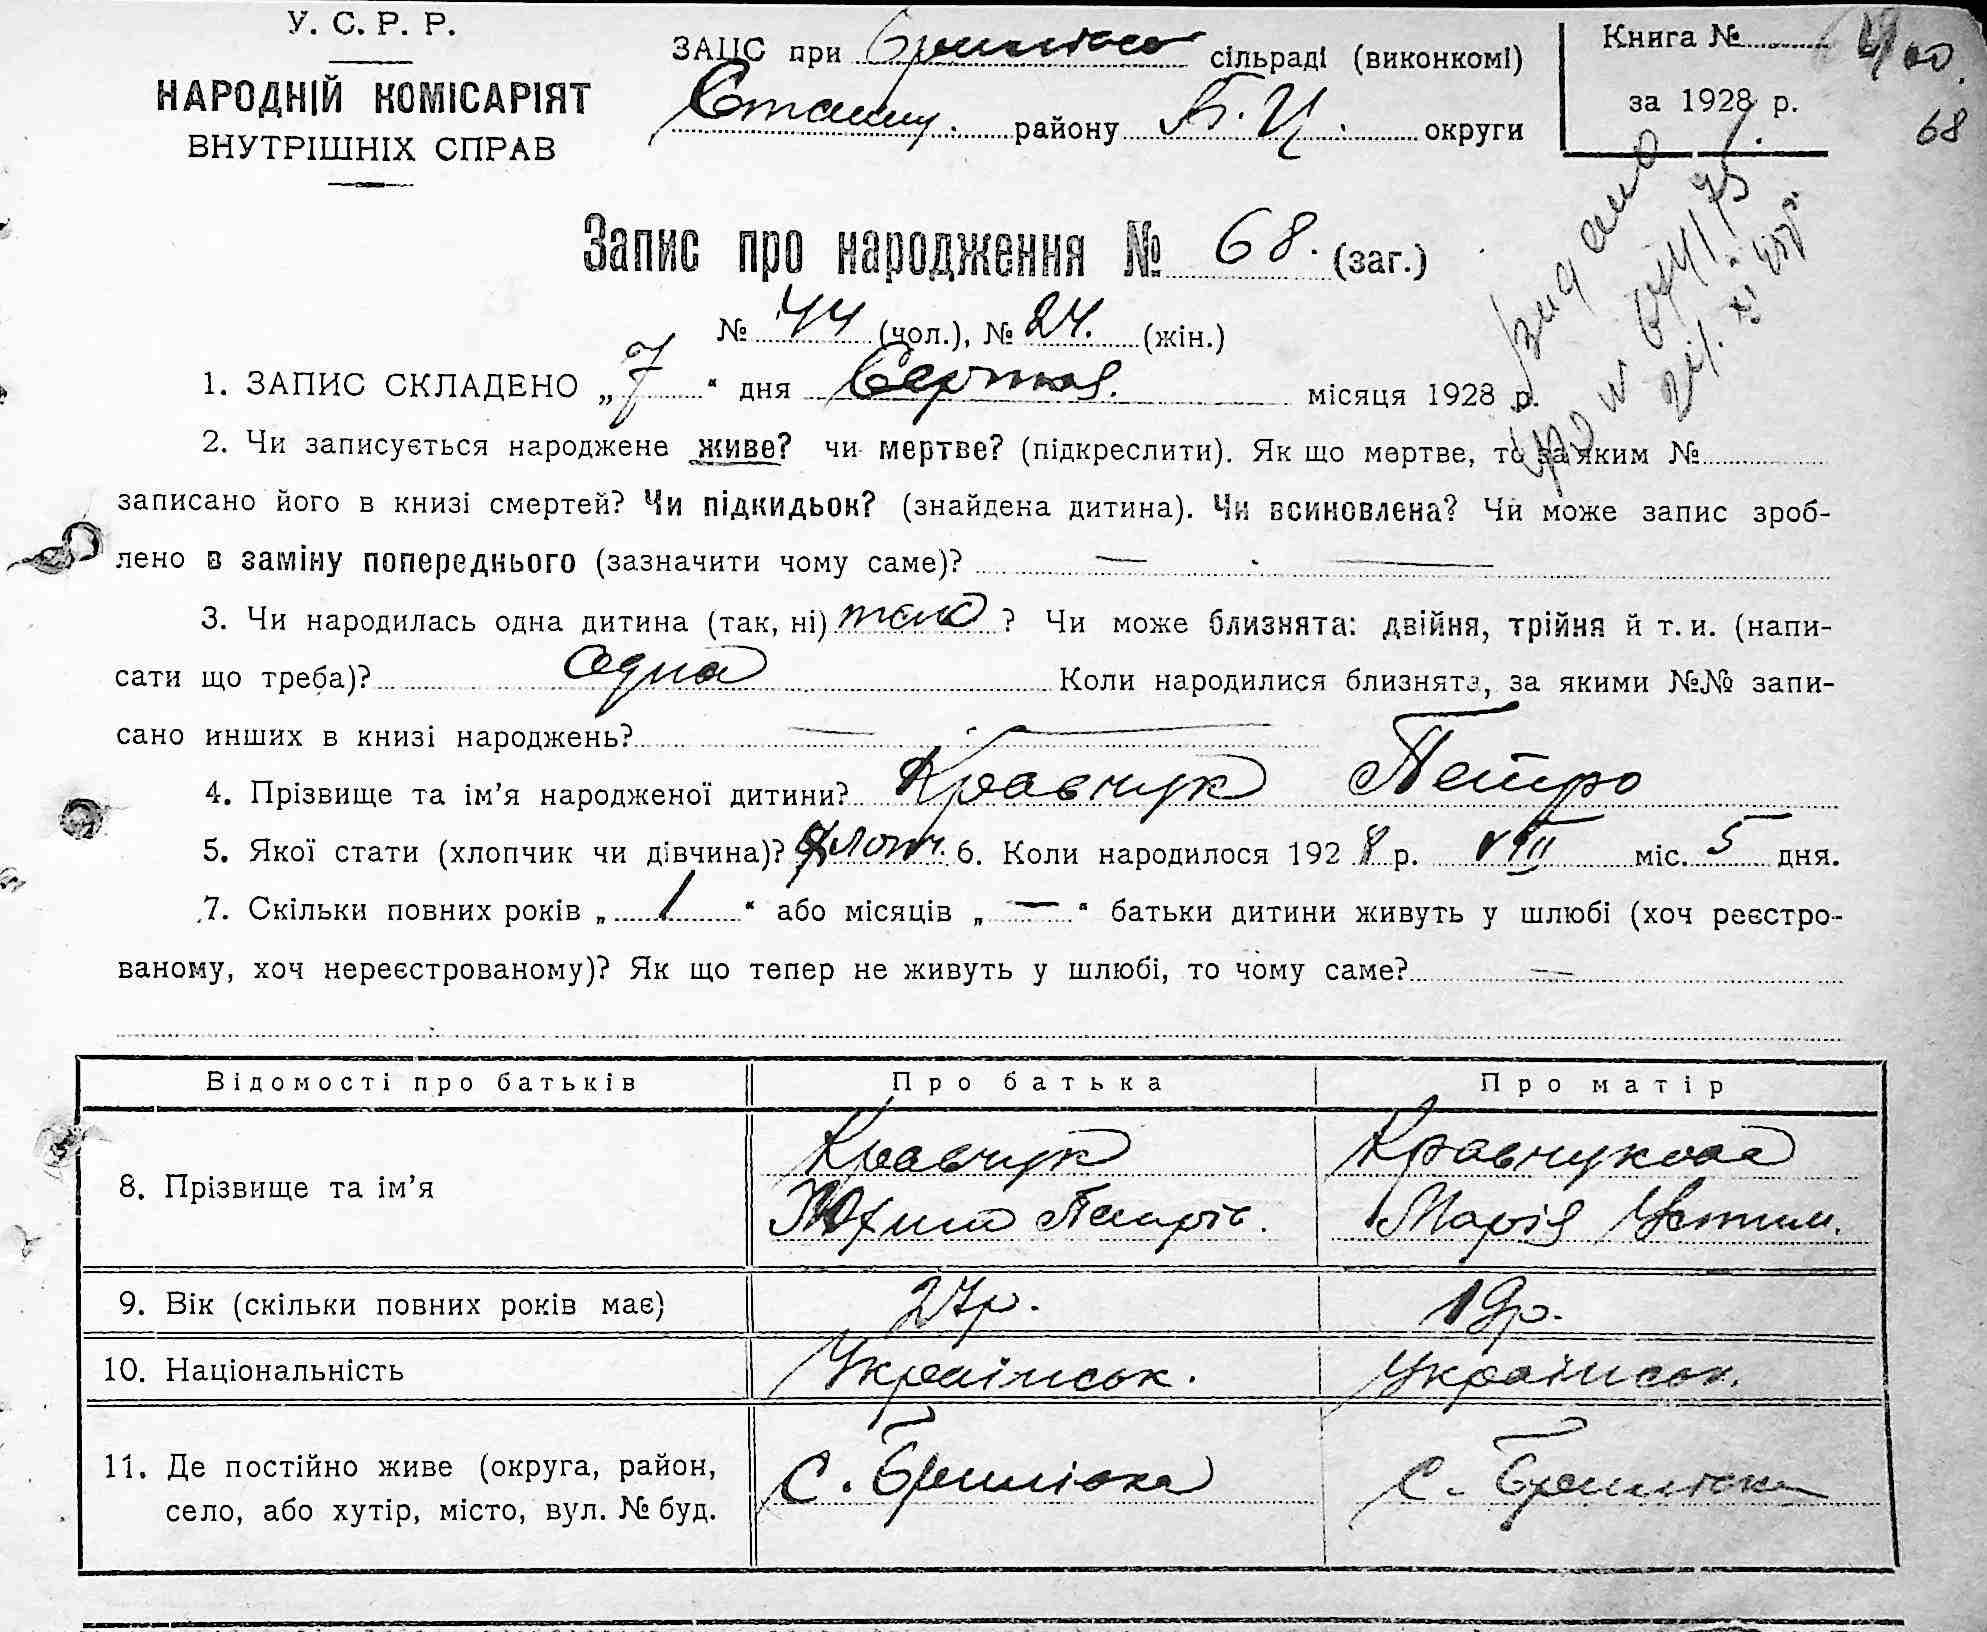 У. С. Р. Р.
НАРОДНІЙ КОМІСАРІЯТ
ВНУТРІШНІХ СПРАВ
ЗАЦС при сільраді (виконкомі)
району Б. Ц. округи
Книга №
за 1928 р.
68
Запис про народження № 68. (заг.)
№ 44 (чол.), № 24. (жін.)
1. ЗАПИС СКЛАДЕНО „ 7 “ дня Серпня. місяця 1928 р.
2. Чи записується народжене живе? чи мертве? (підкреслити). Як що мертве, то за яким №
записано його в книзі смертей? Чи підкидьок? (знайдена дитина). Чи всиновлена? Чи може запис зроб-
лено в заміну попереднього (зазначити чому саме)? — —
3. Чи народилась одна дитина (так, ні) так ? Чи може близнята: двійня, трійня й т. и. (напи-
сати що треба)? одна Коли народилися близнята, за якими №№ запи-
сано инших в книзі народжень? — —
4. Прізвище та ім’я народженої дитини? Кравчук Петро
5. Якої стати (хлопчик чи дівчина)? хлопч. 6. Коли народилося 1928 р. VIII міс. 5 дня.
7. Скільки повних років „ 1 “ або місяців „ — “ батьки дитини живуть у шлюбі (хоч реєстро-
ваному, хоч нереєстрованому)? Як що тепер не живуть у шлюбі, то чому саме? —
Відомості про батьків Про батька Про матір
8. Прізвище та ім’я
Кравчук
Юхим Петрів.
Кравчукова
Марія Устим.
9. Вік (скільки повних років має) 27р. 19р.
10. Національність Українськ. Українськ.
11. Де постійно живе (округа, район,
село, або хутір, місто, вул. № буд.
с.
с.